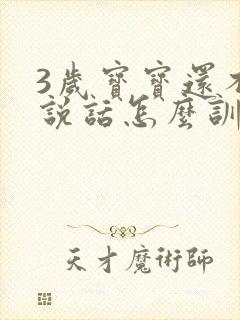 3歲寶寶還不
說話怎麼訓
天才魔術師